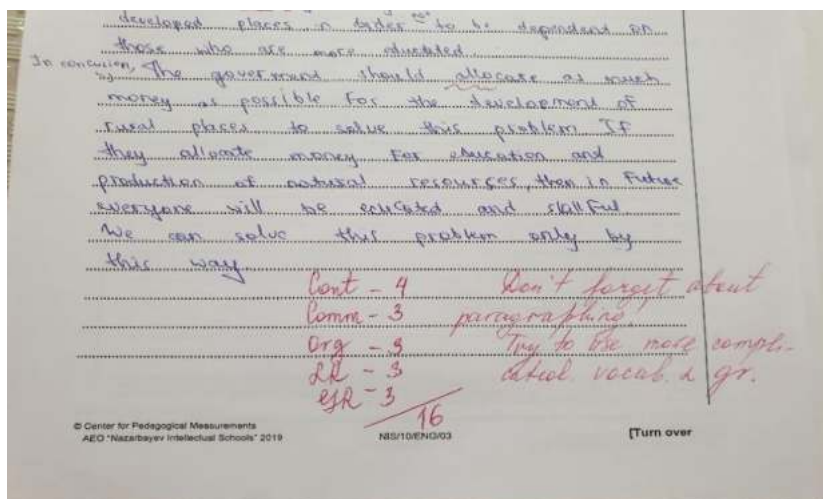 developed places in order to be dependend on
those who are more educated.
In conclusion, The goverment should allocate as much
money as possible for the development of
rural places to solve this problem If
they allocate money for education and
production of natural resourses, then in Future
everyone will be educated and skillful
We can solve this problem only by
this way
Cont - 4
Comm - 3
Org - 3
LR - 3
GR - 3
16
Don't forget about
paragraphing!
Try to use more compli-
cated vocab. & gr.
© Center for Pedagogical Measurements
AEO "Nazarbayev Intellectual Schools" 2019
NIS/10/ENG/03
[Turn over